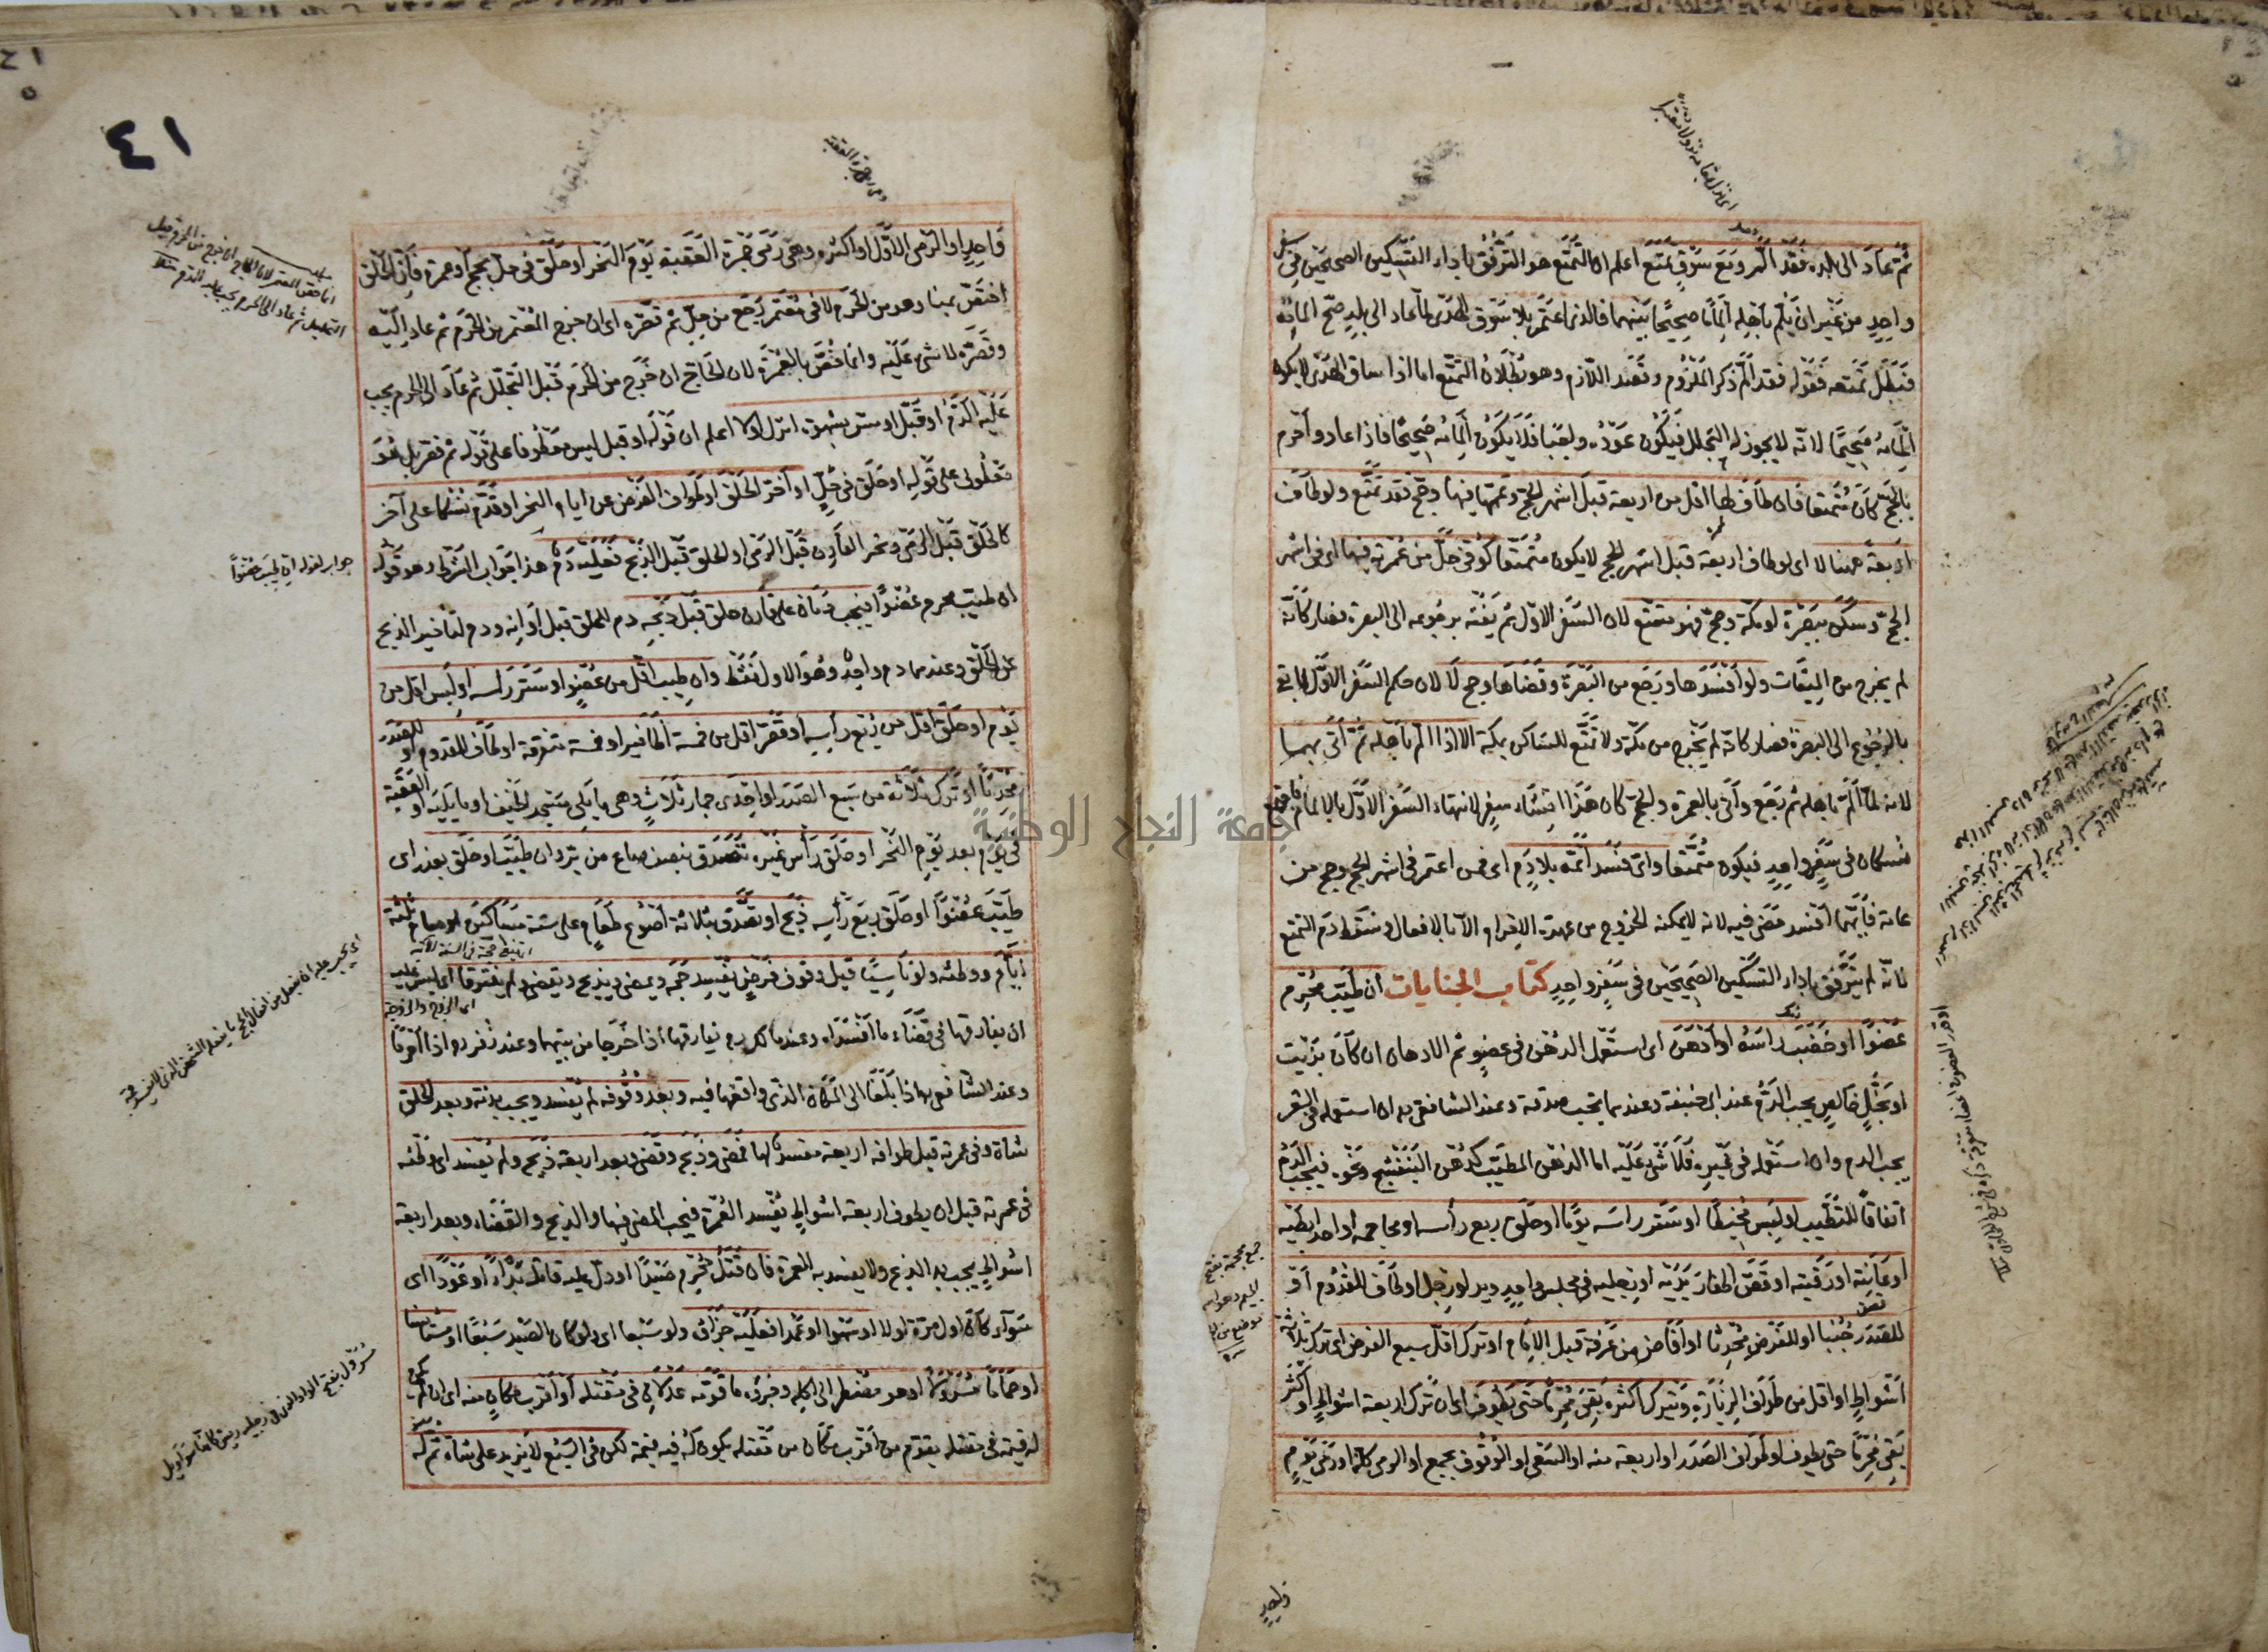 ثم عاد الى بلده فقد الم ومع سوق تمتع اعلم ان التمتع هو الترفق باداء النسكين الصحيحين في سفر
واحد من غير ان يلم باهله الماما صحيحا بينهما فالذى اعتمر بلا سوق الهدى لما عاد الى بلده صح المامه
فبطل تمتعه فقوله فقد الم ذكر الملزوم وقصد اللازم وهو بطلان التمتع اما اذا ساق الهدى لا يكون
المامه صحيحا لانه لا يجوز له التحلل فيكون عوده واجبا فلا يكون المامه صحيحا فاذا عاد واحرم
بالحج كان متمتعا فان طاف لها اقل من اربعة قبل اشهر الحج وتممها فيها وحج فقد تمتع ولو طاف
اربعة هنا لا اى لو طاف اربعة قبل اشهر الحج لا يكون متمتعا كوفى حل من عمرته فيها اى فى اشهر
الحج وسكن ببصرة او مكة وحج فهو متمتع لان السفر الاول لم ينته برجوعه الى البصرة فصار كانه
لم يخرج من الميقات ولو افسدها ورجع من البصرة وقضاها وحج لا لان حكم السفر الاول لما بقى
بالرجوع الى البصرة فصار كانه لم يخرج من مكة ولا تمتع للساكن بمكة الا اذا الم باهله ثم اتى بهما
لانه لما الم باهله ثم رجع واتى بالعمرة والحج كان هذا انشاء سفر لانتهاء السفر الاول بالالمام فاجتمع
نسكان فى سفر واحد فيكون متمتعا واى فسد اتمه بلا دم اى من اعتمر فى اشهر الحج وحج من
عامه فايهما افسد مضى فيه لانه لا يمكنه الخروج من عهدة الاحرام الا بالافعال وسقط دم التمتع
لانه لم يترفق باداء النسكين الصحيحين فى سفر واحد كتاب الجنايات ان طيب محرم
عضوا او خضب راسه او ادهن اى استعمل الدهن فى عضو ثم الادهان ان كان بزيت
او بحل خالص يجب الدم عند ابى حنيفة وعندهما يجب صدقة وعند الشافعى ره ان استعمله فى الشعر
يجب الدم وان استعمله فى غيره فلا شئ عليه اما الدهن المطيب كدهن البنفسج ونحوه فيجب الدم
اتفاقا للتطيب او لبس مخيطا او ستر راسه يوما او حلق ربع رأسه او محاجمه او احد ابطيه
او عانته او رقبته او قص اظفار يديه او رجليه فى مجلس واحد ويد او رجل او طاف للقدوم او
للصدر جنبا او للفرض محدثا او افاض من عرفة قبل الامام او ترك اقل سبع الفرض اى ترك ثلاثة
اشواط او اقل من طواف الزيارة وبترك اكثره بقى محرما حتى يطوف اى ان ترك اربعة اشواط او اكثر
بقى محرما حتى يطوف او طواف الصدر او اربعة منه او السعى او الوقوف بجمع او الرمى كله او رمى يوم
واحد
واحد او الرمى الاول او اكثره وهى رمى جمرة العقبة يوم النحر او حلق فى حل بحج او عمرة فان الحلق
اختص بمنا وهو من الحرم لا فى معتمر رجع من حل ثم قصر اى ان خرج المعتمر من الحرم ثم عاد اليه
وقصر لا شئ عليه وانما خص بالعمرة لان الحاج ان خرج من الحرم قبل التحلل ثم عاد الى الحرم يجب
عليه الدم او قبل او مس بشهوة انزل اولا اعلم ان قوله او قبل ليس معطوفا على قوله ثم قصر بل هو
معطوف على قوله او حلق فى حل او اخر الحلق او طواف الفرض عن ايام النحر او قدم نسكا على آخر
كالحلق قبل الرمى ونحر القارن قبل الرمى او الحلق قبل الذبح فعليه دم هذا جواب الشرط وهو قوله
ان طيب محرم عضوا فيجب دمان على قارن حلق قبل ذبحه دم للحلق قبل اوانه ودم لتاخير الذبح
عن الحلق وعندهما دم واحد وهو الاول فقط وان طيب اقل من عضو او ستر راسه او لبس اقل من
يوم او حلق اقل من ربع رأسه او قص اقل من خمسة اظافير او خمسة متفرقة او طاف للقدوم او للصدر
محدثا او ترك ثلاثة من سبع الصدر او احدى جمار ثلاث وهى ما يلى مسجد الخيف او ما يليه او العقبة
فى يوم بعد يوم النحر او حلق رأس غيره تصدق بنصف صاع من بر وان طيب او حلق بعذر اى
طيب عضوا او حلق ربع رأسه ذبح او تصدق بثلاثة اصوع طعام على ستة مساكين او صام ثلثة
ايام ووطئه ولو ناسيا قبل وقوف فرض يفسد حجه ويمضى ويذبح ويقضى ولم يفترقا اى ليس عليه
ان يفارقها فى قضاء ما افسداه وعند مالك ره يفارقها اذا خرجا من بيتهما وعند زفر ره اذا احرما
وعند الشافعى ره اذا بلغا الى المكان الذى واقعها فيه وبعد وقوفه لم يفسد ويجب بدنة وبعد الحلق
شاة وفى عمرته قبل طوافه اربعة مفسد لها فمضى وذبح وقضى وبعد اربعة ذبح ولم يفسد اى وطئه
فى عمرته قبل ان يطوف اربعة اشواط يفسد العمرة فيجب المضى فيها والذبح والقضاء وبعد اربعة
اشواط يجب به الذبح ولا يفسد به العمرة فان قتل محرم صيدا او دل عليه قاتله بدأ او عودا اى
سواء كان اول مرة او لا او سهوا او عمدا فعليه جزاؤه ولو سبعا اى ولو كان الصيد سبعا او مستانسا
او حماما مسرولا او هو مضطر الى اكله وجزاؤه ما قومه عدلان فى مقتله او اقرب مكان منه اى ان لم يكن
له قيمة فى مقتله يقوم من اقرب مكان من مقتله يكون له فيه قيمة لكن فى السبع لا يزيد على شاة ثم له
٤١
جواب لقوله ان طيب عضوا
جامعة النجاح الوطنية